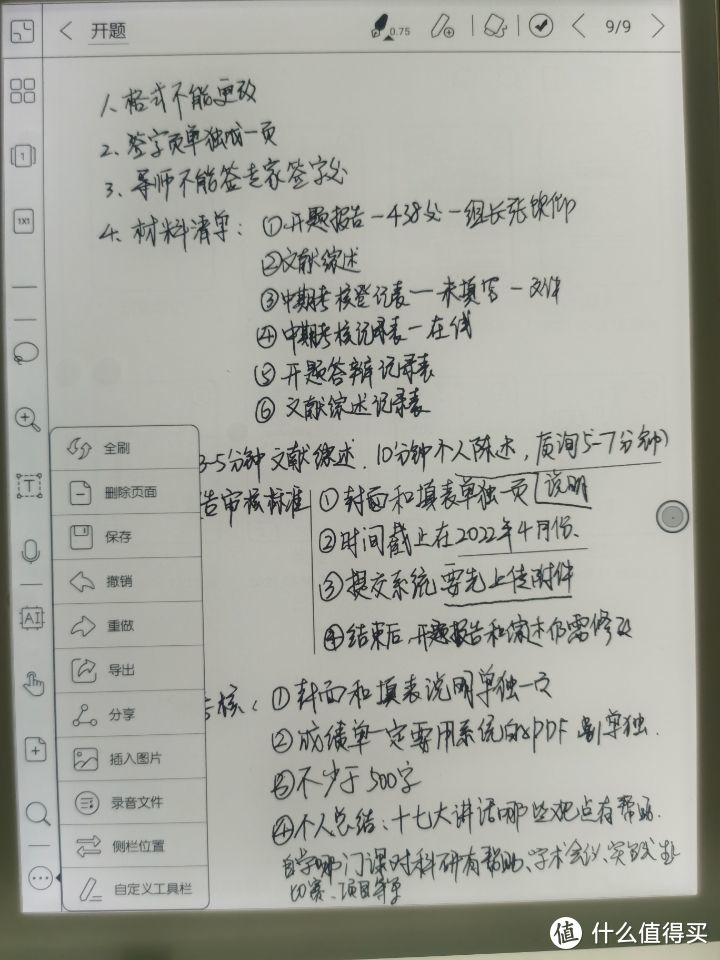 开题
0.75
9/9
1
1X1
T
AI
1、格式不能更改
2、签字页单独成一页
3、导师不能签专家签字处
4、材料清单：①开题报告-438处-组长张
②文献综述
③中期考核登记表-未填写-文件
④中期考核记录表-在线
⑤开题答辩记录表
⑥文献综述记录表
3-5分钟文献综述，10分钟个人陈述，质询5-7分钟)
告审核标准 ①封面和填表单独一页 说明
②时间截止在2022年4月份、
③提交系统要先上传附件
④结束后，开题报告和综述仍需修改
考核：①封面和填表说明单独一页
②成绩单一定要用系统的PDF 单独.
③不少于500字
④个人总结：十七大讲话哪些观点有帮助.
自学哪门课对科研有帮助、学术会议、
项目等等
全刷
删除页面
保存
撤销
重做
导出
分享
插入图片
录音文件
侧栏位置
自定义工具栏
值 什么值得买